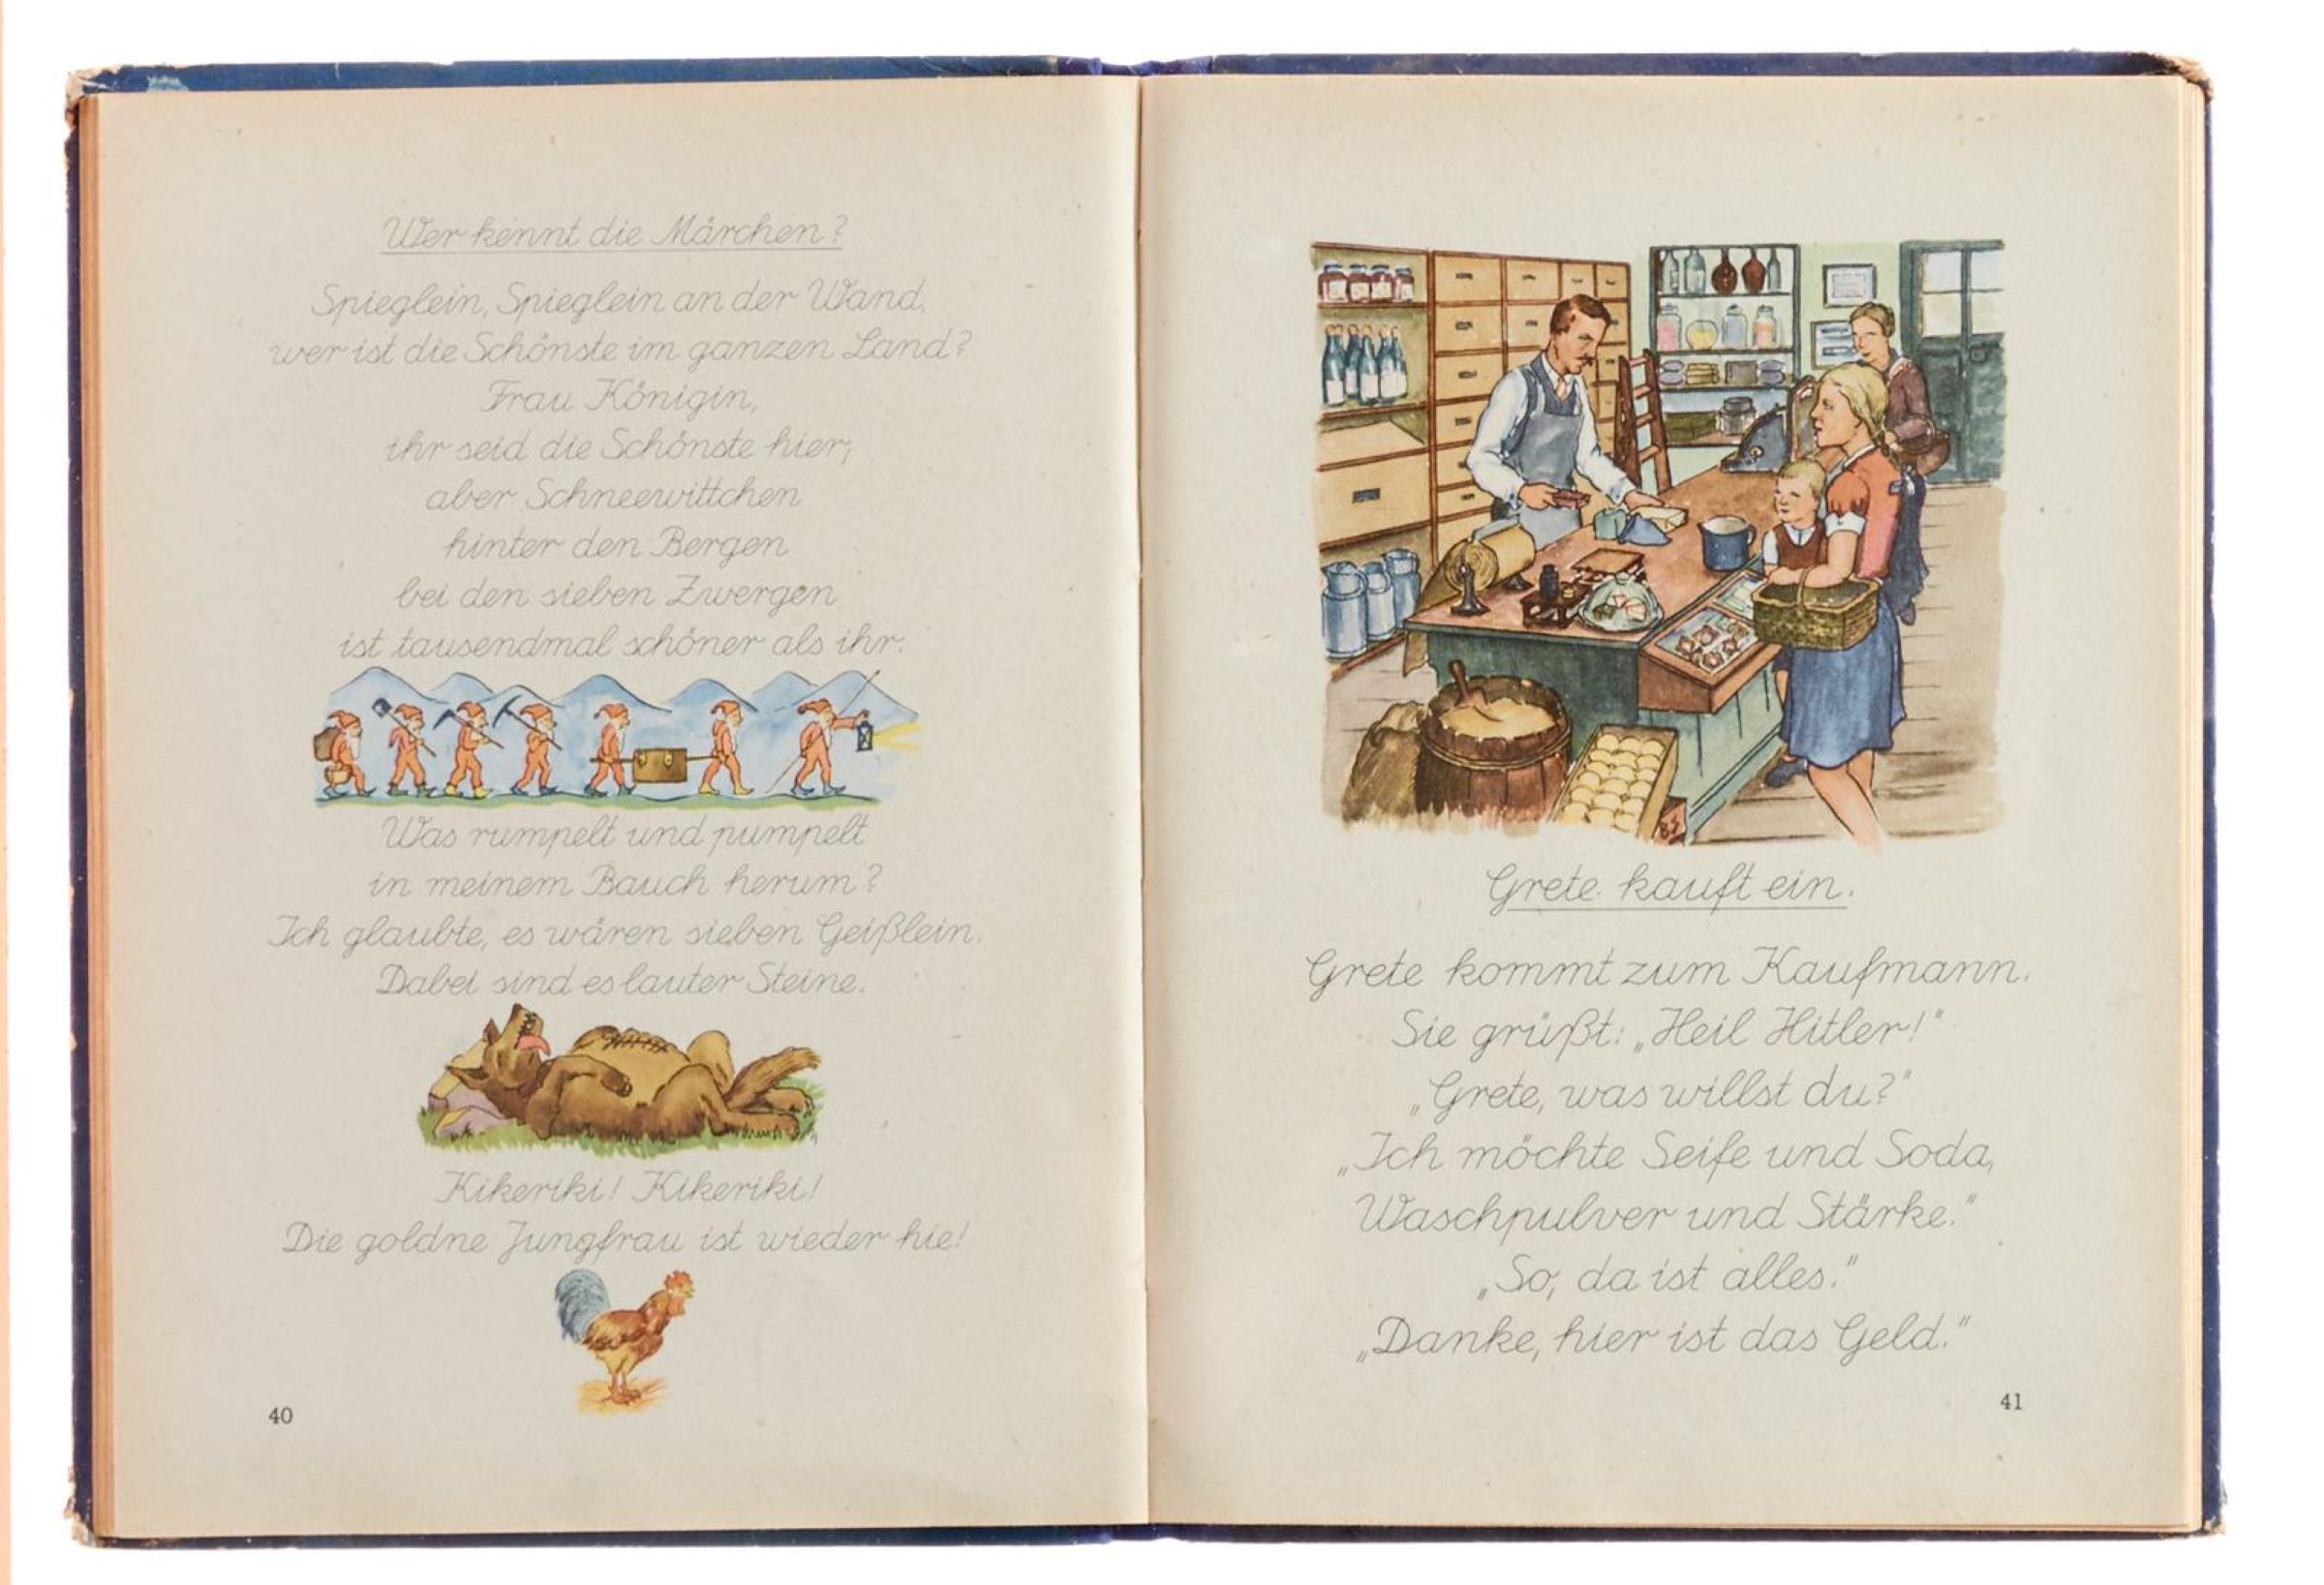 Wer kennt die Märchen?
Spieglein, Spieglein an der Wand,
wer ist die Schönste im ganzen Land?
Frau Königin,
ihr seid die Schönste hier;
aber Schneewittchen
hinter den Bergen
bei den sieben Zwergen
ist tausendmal schöner als ihr.
Was rumpelt und pumpelt
in meinem Bauch herum?
Ich glaubte, es wären sieben Geißlein.
Dabei sind es lauter Steine.
Kikeriki! Kikeriki!
Die goldne Jungfrau ist wieder hie!
40
BS
Grete kauft ein.
Grete kommt zum Kaufmann.
Sie grüßt: „Heil Hitler!"
„Grete, was willst du?"
„Ich möchte Seife und Soda,
Waschpulver und Stärke."
„So, da ist alles."
„Danke, hier ist das Geld."
41